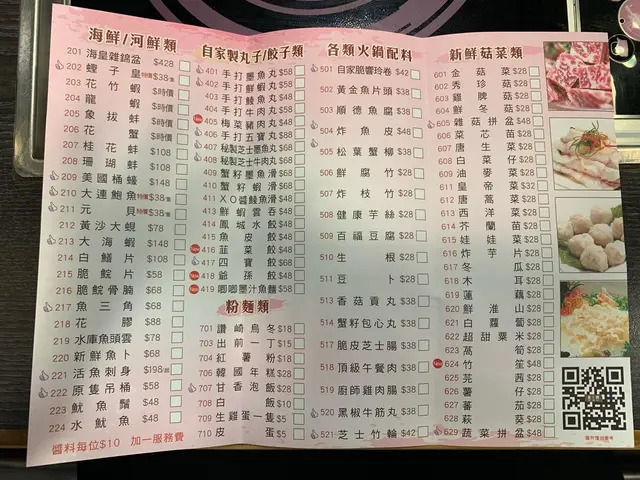 海鮮/河鮮類
201 海皇雜錦盆 $428
202 蟶子皇 特價$38/隻
203 花竹蝦 $時價
204 龍蝦 $時價
205 象拔蚌 $時價
206 花蟹 $時價
207 桂花蚌 $108
208 珊瑚蚌 $108
209 美國桶蠔 $148
210 大連鮑魚 特價$38/隻
211 元貝 特價$38/隻
212 黃沙大蜆 $78
213 大海蝦 $148
214 白鱔片 $108
215 脆鯇片 $58
216 脆鯇骨腩 $68
217 魚三角 $68
218 花膠 $88
219 水庫魚頭雲 $78
220 新鮮魚卜 $68
221 活魚刺身 $198
222 原隻吊桶 $58
223 魷魚鬚 $48
224 水魷魚 $48
醬料每位$10 加一服務費
自家製丸子/餃子類
401 手打墨魚丸 $58
402 手打鮮蝦丸 $58
403 手打鯪魚丸 $48
404 手打牛肉丸 $58
New 405 梅菜豬肉丸 $48
406 手打五寶丸 $68
407 秘製芝士墨魚丸 $68
408 秘製芝士牛肉丸 $68
409 蟹籽墨魚滑 $68
410 蟹籽蝦滑 $68
411 XO醬鯪魚滑 $68
413 鮮蝦雲吞 $48
414 鳳城水餃 $48
415 魚皮餃 $48
New 416 韮菜餃 $48
417 四寶餃 $68
New 418 爺孫餃 $48
New 419 唧唧墨汁魚麵 $58
粉麵類
701 讚崎烏冬 $18
703 出前一丁 $15
704 紅薯粉 $18
706 韓國年糕 $28
707 甘香泡飯 $28
708 白飯 $10
709 生雞蛋一隻 $5
710 皮蛋 $5
各類火鍋配料
501 自家脆響玲卷 $42
502 黃金魚片頭 $38
503 順德魚腐 $38
504 炸魚皮 $48
505 松葉蟹柳 $38
506 鮮腐竹 $28
507 炸枝竹 $28
508 健康芋絲 $28
509 百福豆腐 $28
510 生根 $28
511 豆卜 $28
513 香菇貢丸 $38
514 蟹籽包心丸 $38
517 脆皮芝士腸 $38
518 頂級午餐肉 $38
519 廚師雞肉腸 $38
520 黑椒牛筋丸 $38
521 芝士竹輪 $42
新鮮菇菜類
601 金菇菜 $28
602 秀珍菇 $28
603 雞髀菇 $28
604 鮮冬菇 $28
605 雜菇拼盆 $48
606 菜芯苗 $28
607 唐生菜 $28
608 白菜仔 $28
609 油麥菜 $28
611 皇帝菜 $32
612 唐蒿菜 $28
613 西洋菜 $28
614 芥蘭苗 $28
615 娃娃菜 $28
616 炸芋片 $28
617 冬瓜 $28
618 木耳 $28
619 蓮藕 $28
620 鮮淮山 $28
621 白蘿蔔 $28
622 超甜粟米 $28
623 萵筍 $28
New 624 竹笙 $48
625 芫茜 $28
626 薯仔 $28
627 蕃茄 $28
628 萩葵 $28
629 蔬菜拼盆 $48
圖片僅供參考